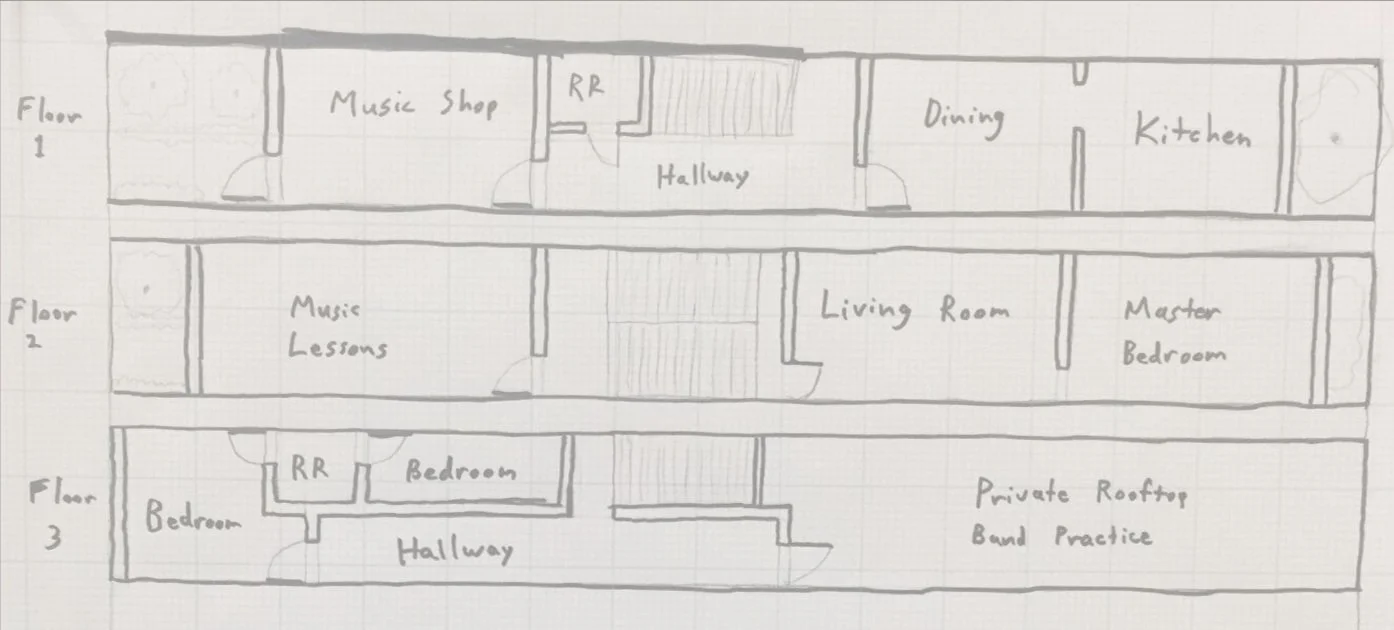 Floor
1
Music Shop
RR
Hallway
Dining
Kitchen
Floor
2
Music
Lessons
Living Room
Master
Bedroom
Floor
3
Bedroom
RR
Bedroom
Hallway
Private Rooftop
Band Practice